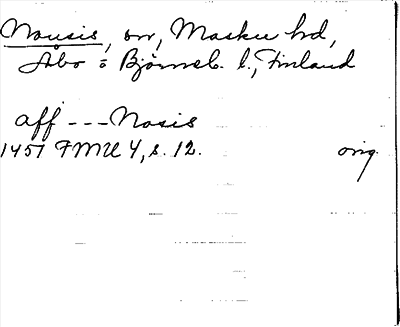 Nousis, sn, Masku hd,
Åbo o Björneb. l., Finland
aff --- Nosis
1457 FMU 4, s. 12. orig.